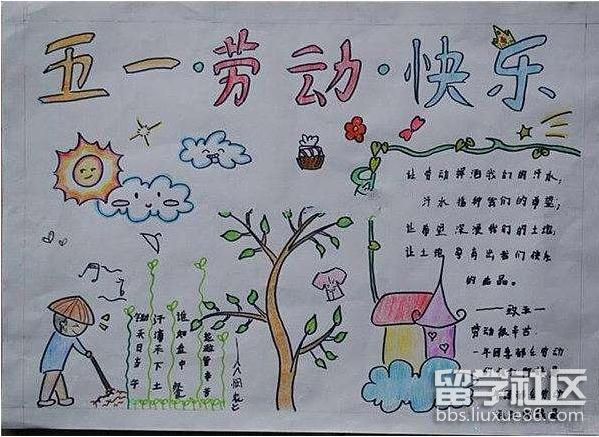 五一·劳动·快乐
让劳动挥洒我们的汗水;
汗水播种我们的希望;
让希望浸漫我们的土地;
让土地孕育出我们快乐
的成品。
——致五一
劳动很辛苦
一年四季都在劳动
锄禾日当午
汗滴禾下土
谁知盘中餐
粒粒皆辛苦
留学社区
bbs.liuxue86.com